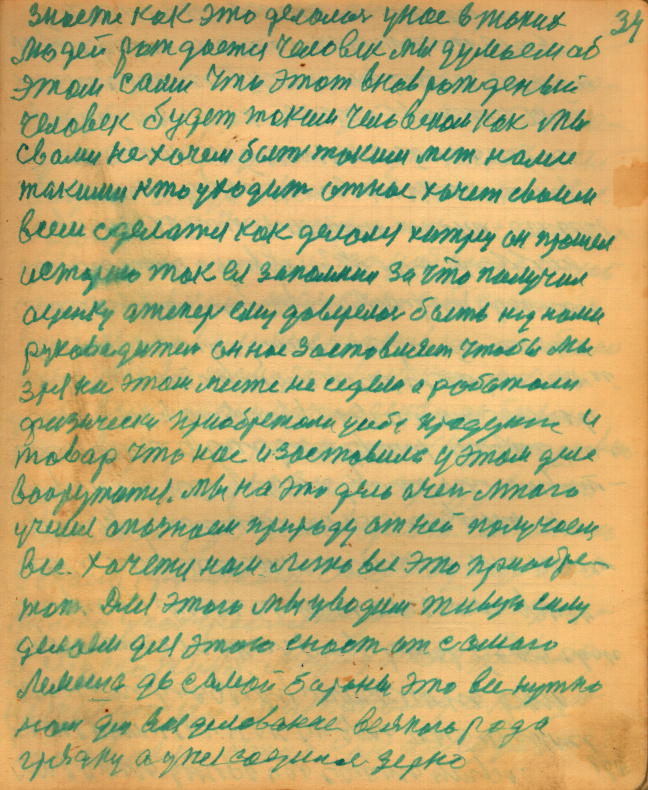 34
знаете как это делалось у нас в таких
людей рождается человек мы думаем об
этом сами что этот вновь рожденый
человек будет таким человеком как мы
с вами не хочем быть таким меж нами
такими кто уходит от нас хочет своим
всем сделатся как делался хитру он прошел
историю так ея запомнил за что получил
оценку а тепер ему доверелос быть над нами
руководителем он нас заставляет чтобы мы
зря на этом месте не седели а работали
физически приобретали у себя продукт и
товар что нас и заставило у этом деле
вооружатся. Мы на это дело очен много
учимся опознаем природу от ней получаем
все. Хочется нам легко все это приобре-
тат. Для этого мы уводим живую силу
делаем для этого снаст от самого
лемеша до самой бороны это все нужно
нам для возделование всякого рода
грядку а у нея садится зерно